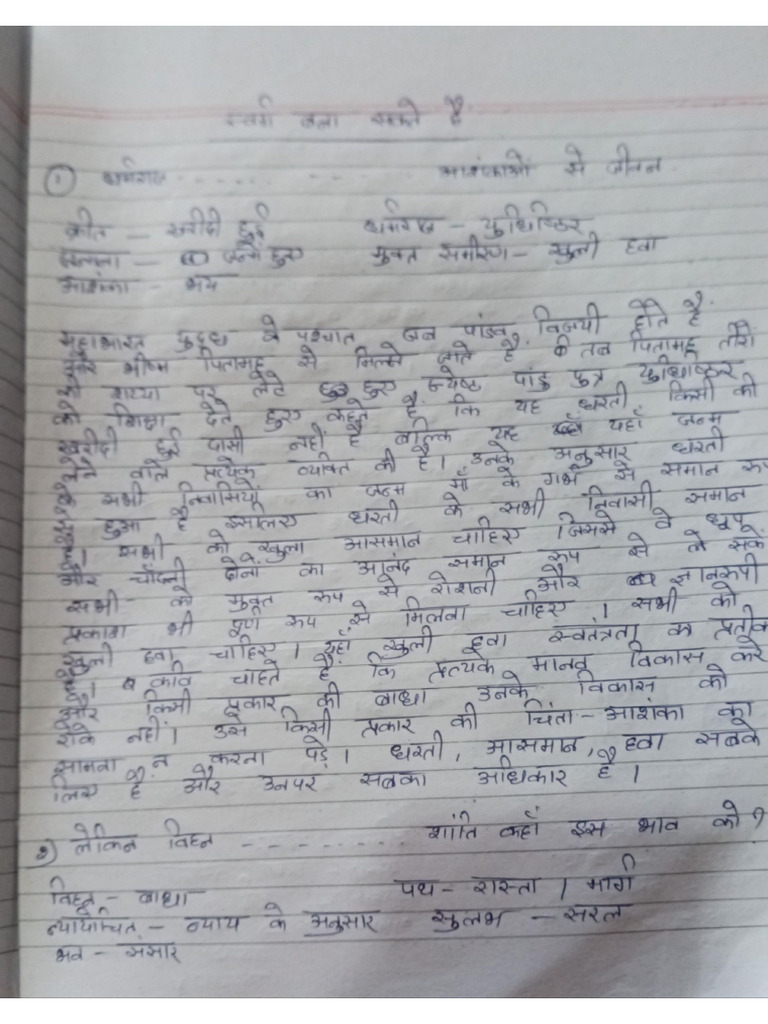 स्वर्ग बना सकते है
① धर्मराज - - - - - - - - - - आशंकाओं से जीवन
क्रीत – खरीदी हुई धर्मराज – युधिष्ठिर
जन्मना – जन्में हुए मुक्त समीरण – खुली हवा
आशंका – भय
महाभारत युद्ध के पश्चात जब पांडव विजयी होते है
और भीष्म पितामह से मिलने जाते है तब पितामह तीरो
की शय्या पर लेटे हुए ज्येष्ठ पांडु पुत्र युधिष्ठिर
को शिक्षा देते हुए कहते है कि यह धरती किसी की
खरीदी हुई दासी नहीं है बल्कि यह यहाँ जन्म
लेने वाले प्रत्येक व्यक्ति की है। उनके अनुसार धरती
के सभी निवासियों का जन्म माँ के गर्भ से समान रूप
से हुआ है इसलिए धरती के सभी निवासी समान
है। सभी को खुला आसमान चाहिए जिससे वे धूप
और चाँदनी दोनों का आनंद समान रूप से ले सकें
सभी को मुक्त रूप से रोशनी और ज्ञानरूपी
प्रकाश भी पूर्ण रूप से मिलना चाहिए। सभी को
खुली हवा चाहिए। यहाँ खुली हवा स्वतंत्रता का प्रतीक
है। कवि चाहते है कि प्रत्येक मानव विकास करे
और किसी प्रकार की बाधा उनके विकास को
रोके नहीं। उसे किसी प्रकार की चिंता – आशंका का
सामना न करना पड़े। धरती, आसमान, हवा सबके
लिए है और उनपर सबका अधिकार है।
2) लेकिन विघ्न - - - - - - - - - - शांति कहाँ इस भाव को?
विघ्न – बाधा पथ – रास्ता / मार्ग
न्यायोचित – न्याय के अनुसार सुलभ – सरल
भव – संसार